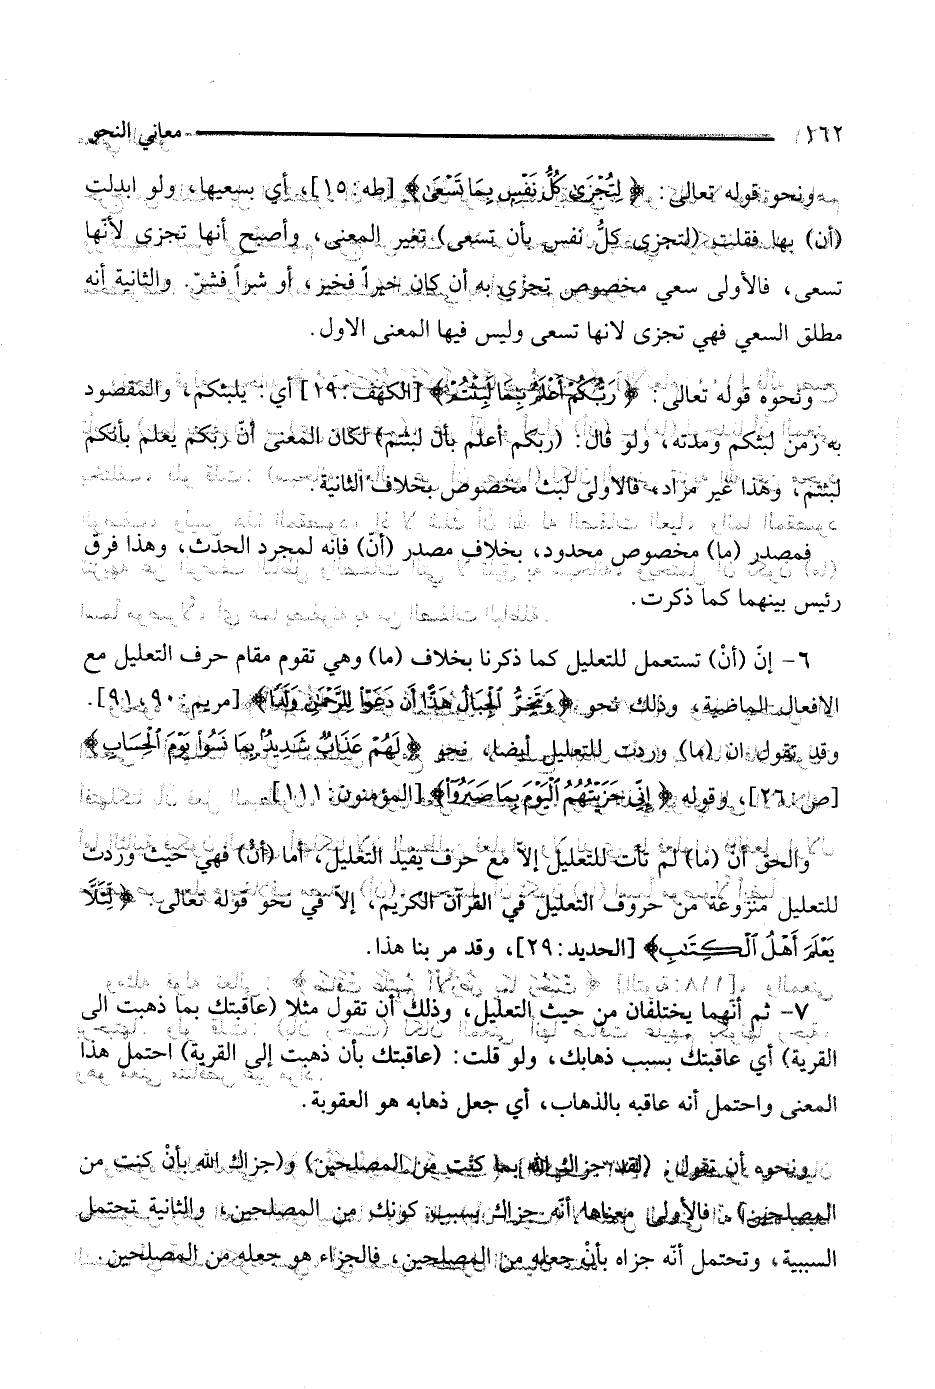 ١٦٢ معاني النحو
ونحو قوله تعالى: ﴿لِتُجْزَىٰ كُلُّ نَفْسٍ بِمَا تَسْعَىٰ﴾ [طه: ١٥]، أي بسعيها، ولو ابدلت
(أن) بها فقلت (لتجزى كلُّ نفس بأن تسعى) تغير المعنى، وأصبح أنها تجزى لأنّها
تسعى، فالأولى سعي مخصوص تجزي به أن كان خيراً فخير، أو شراً فشرّ. والثانية أنه
مطلق السعي فهي تجزى لانها تسعى وليس فيها المعنى الاول.
ونحوه قوله تعالى: ﴿رَبُّكُمْ أَعْلَمُ بِمَا لَبِثْتُمْ﴾ [الكهف: ١٩] أي: بلبثكم، والمقصود
به زمن لبثكم ومدته، ولو قال: (ربكم أعلم بأن لبثتم) لكان المعنى أنّ ربكم يعلم بأنكم
لبثتم، وهذا غير مراد، فالاولى لبث مخصوص بخلاف الثانية.
فمصدر (ما) مخصوص محدود، بخلاف مصدر (أنّ) فانه لمجرد الحدّث، وهذا فرق
رئيس بينهما كما ذكرت.
٦- إنّ (أنْ) تستعمل للتعليل كما ذكرنا بخلاف (ما) وهي تقوم مقام حرف التعليل مع
الافعال الماضية، وذلك نحو ﴿وَتَخِرُّ الْجِبَالُ هَدًّا أَن دَعَوْا لِلرَّحْمَٰنِ وَلَدًا﴾ [مريم: ٩٠، ٩١].
وقد تقول ان (ما) وردت للتعليل أيضا، نحو ﴿لَهُمْ عَذَابٌ شَدِيدٌ بِمَا نَسُوا يَوْمَ الْحِسَابِ﴾
[ص: ٢٦]، وقوله ﴿إِنِّي جَزَيْتُهُمُ ٱلْيَوْمَ بِمَا صَبَرُوٓا﴾ [المؤمنون: ١١١].
والحق أنّ (ما) لم تأت للتعليل إلاّ مع حرف يفيد التعليل، أما (أنْ) فهي حيث وردت
للتعليل منزوعة من حروف التعليل في القرآن الكريم، إلاّ في نحو قوله تعالى: ﴿لِئَلَّا
يَعْلَمَ أَهْلُ ٱلْكِتَٰبِ﴾ [الحديد: ٢٩]، وقد مر بنا هذا.
٧- ثم أنّهما يختلفان من حيث التعليل، وذلك أن تقول مثلا (عاقبتك بما ذهبت الى
القرية) أي عاقبتك بسبب ذهابك، ولو قلت: (عاقبتك بأن ذهبت إلى القرية) احتمل هذا
المعنى واحتمل أنه عاقبه بالذهاب، أي جعل ذهابه هو العقوبة.
ونحوه أن تقول: (لقد جزاك الله بما كنت من المصلحين) و(جزاك الله بأنْ كنت من
المصلحين). فالأولى معناها أنّه جزاك بسبب كونك من المصلحين، والثانية تحتمل
السببية، وتحتمل أنّه جزاه بأنْ جعله من المصلحين، فالجزاء هو جعله من المصلحين.